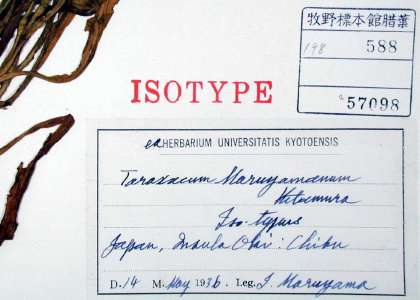 牧野標本館腊葉
198 588
57098
ISOTYPE
ex HERBARIUM UNIVERSITATIS KYOTOENSIS
Taraxacum Maruyamanum
Kitamura
Iso-typus
Japan, Insula Oki: Chibu
D. 14 M. May 1936. Leg. J. Maruyama